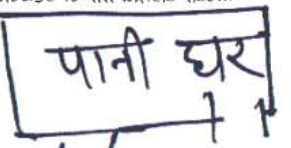 पानी घर